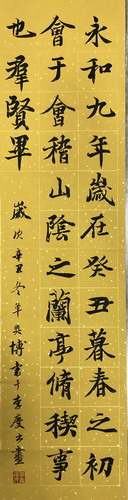 永和九年歲在癸丑暮春之初
會于會稽山陰之蘭亭脩禊事
也羣賢畢
歲次辛丑冬年奕博書于李慶書畫